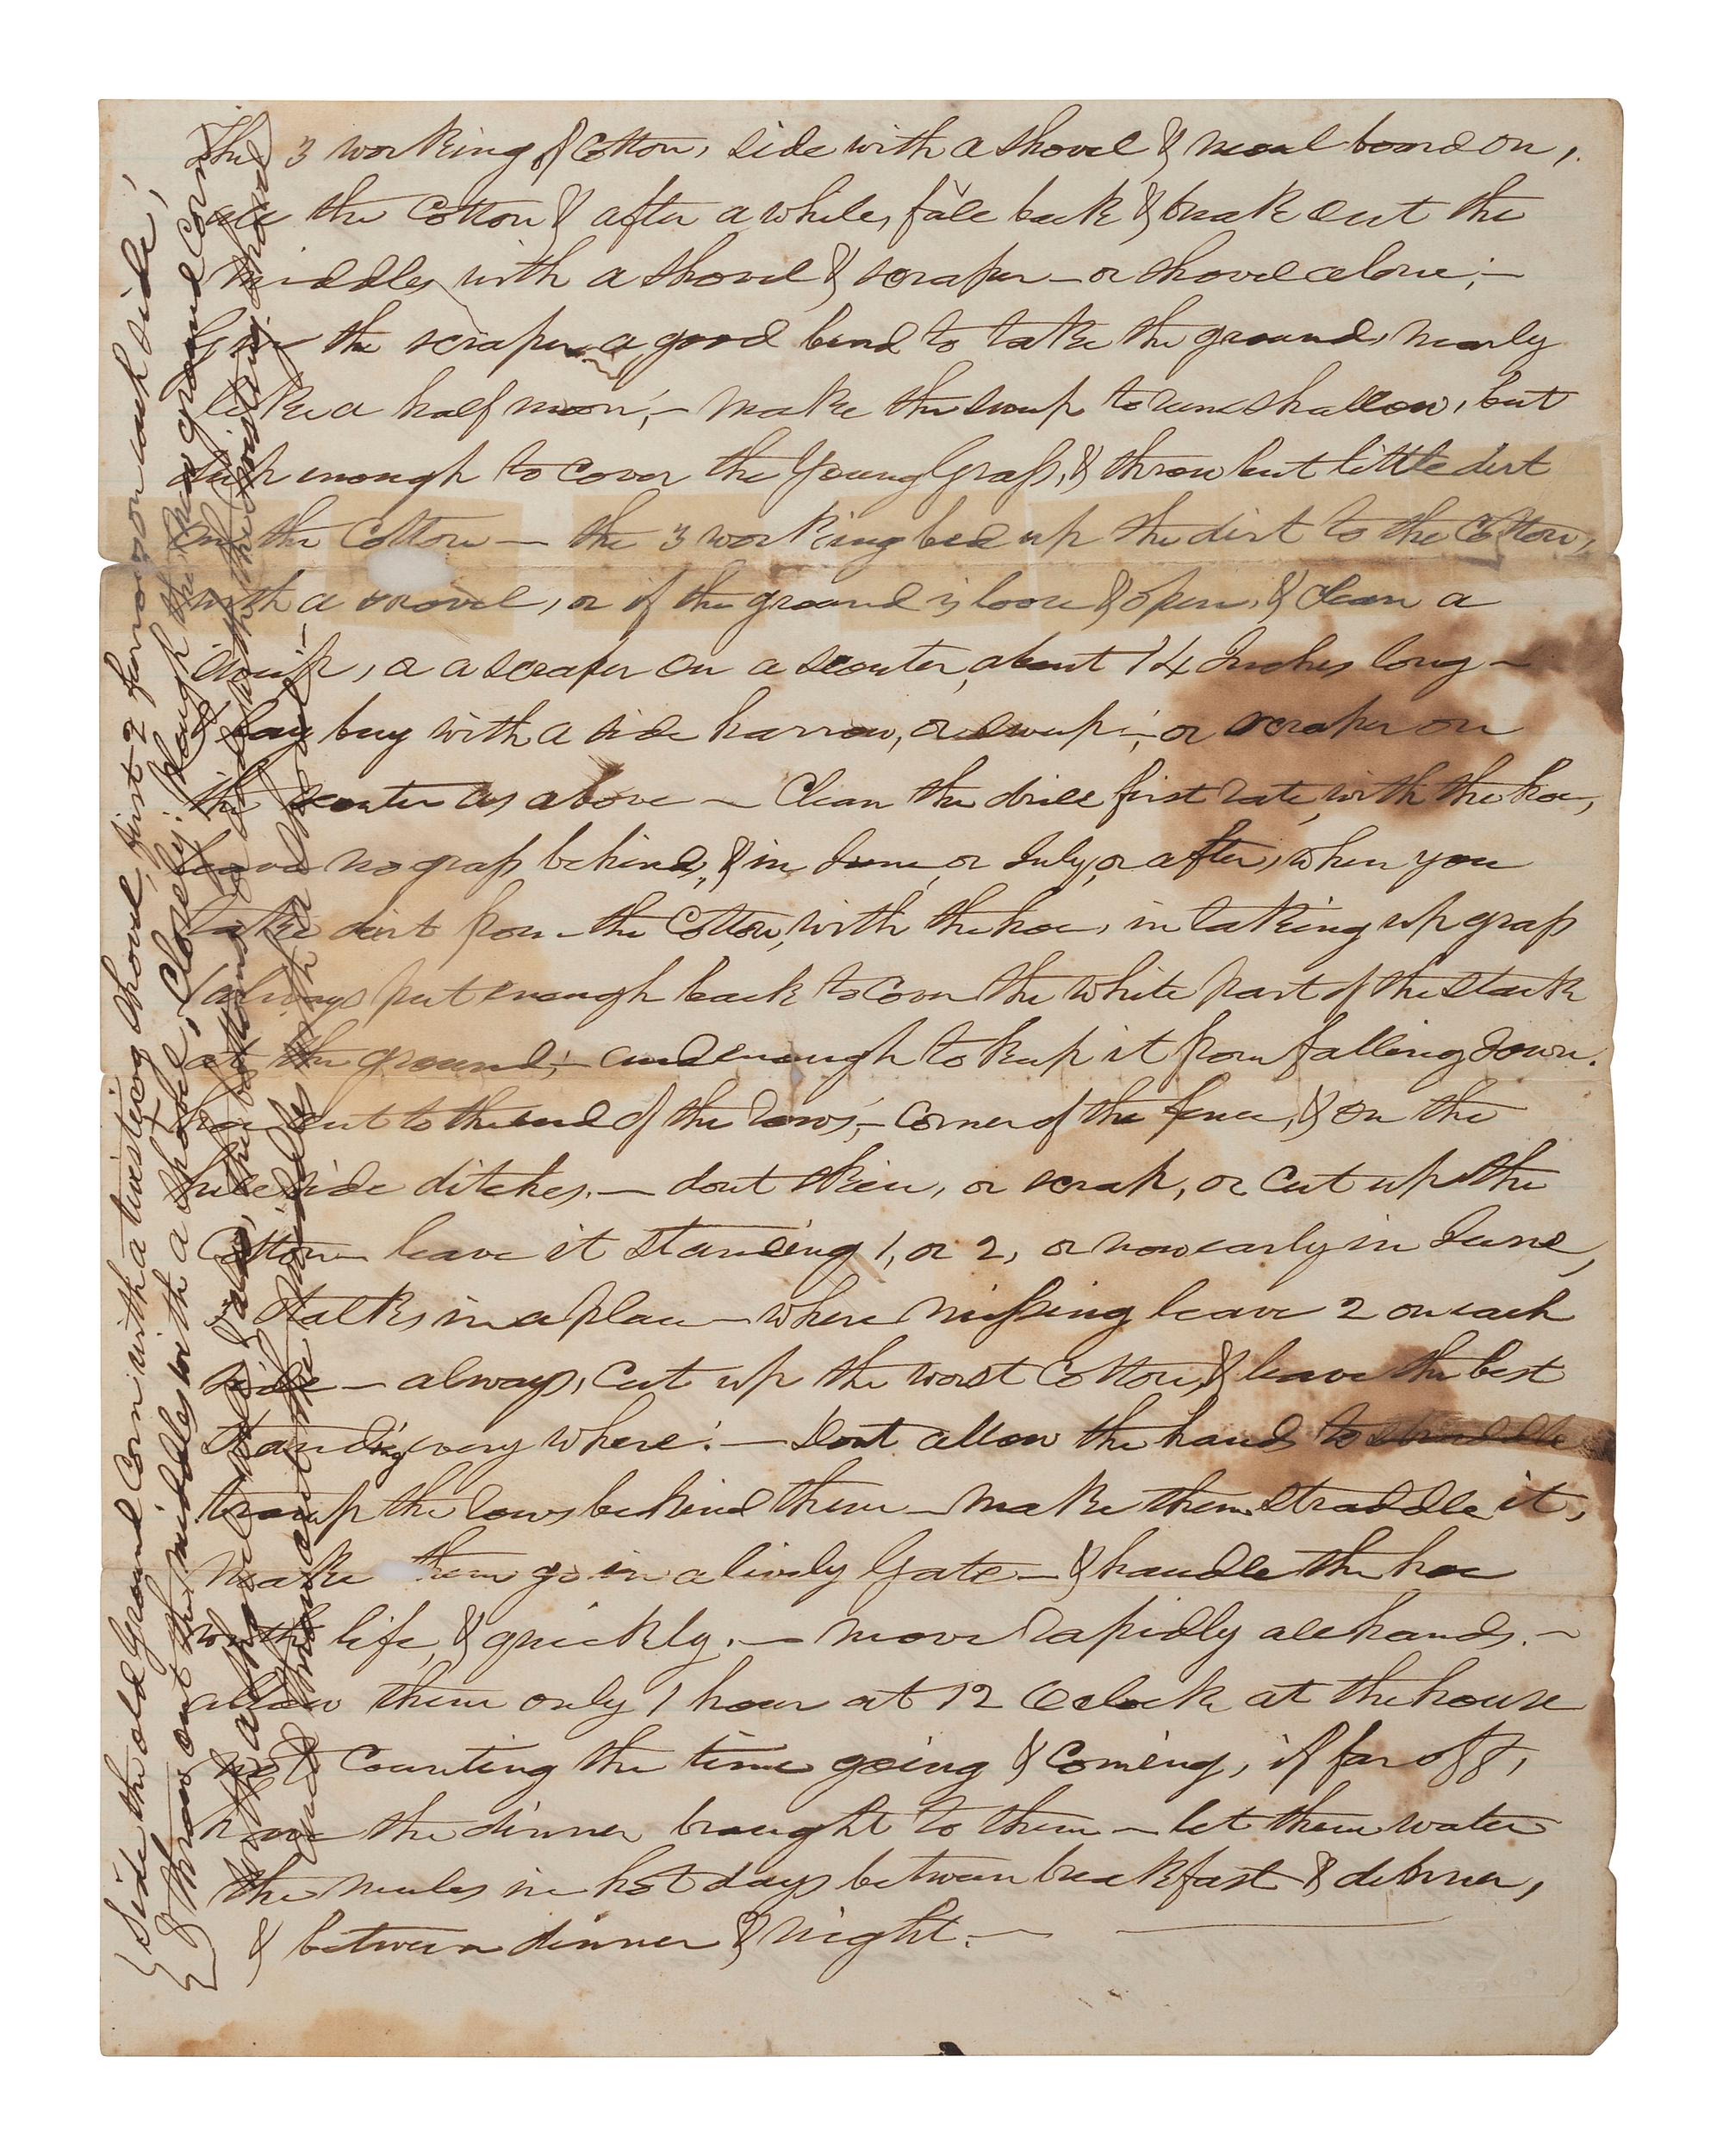 The 3 working of Cotton, side with a shovel & moul board on,
all the Cotton & after a while, fale back & break out the
middles with a shovel & scraper – or shovel alone; –
Give the scraper a good bend to take the ground, nearly
like a half moon; – make the sweep to run shallow, but
deep enough to cover the young Grass, & throw but little dirt
on the Cotton – the 3 working bed up the dirt to the Cotton,
with a shovel, or if the ground is loose & open, & clean a
sweep, or a scraper on a scouter, about 14 Inches long –
Lay buy with a side harrow, or sweep; – or scraper on
the scouter as above – Clean the drill first rate, with the hoe,
leave no grass behind, & in June or July, or after, when you
take dirt from the Cotton, with the hoe, in taking up grass
always put enough back to cover the white part of the stalk
at the ground; – and enough to keep it from falling down.
hoe out to the end of the rows, – corner of the fence, & on the
hill side ditches. – dont skin, or scrap, or cut up the
Cotton – leave it standing 1, or 2, or now early in June,
stalks in a place – where missing leave 2 on each
side – always, cut up the worst Cotton, & leave the best
standing every where: – dont allow the hands to straddle
tramp the rows behind them – make them straddle it,
make them go in a lively Gate – & handle the hoe
with life, & quickly. – move rapidly all hands. –
allow them only 1 hour at 12 Oclock at the house
not counting the time going & coming, if far off,
have the dinner brought to them – let them water
the mules in hot days between breakfast & dinner,
& between dinner & night. –
Side the old Ground Corn with a twisting shovel, first 2 furrows on each side,
& throw out the middles with a shovel, Closely: plough the new ground Corn
with a shovel
and throw out the middles with a shovel; –